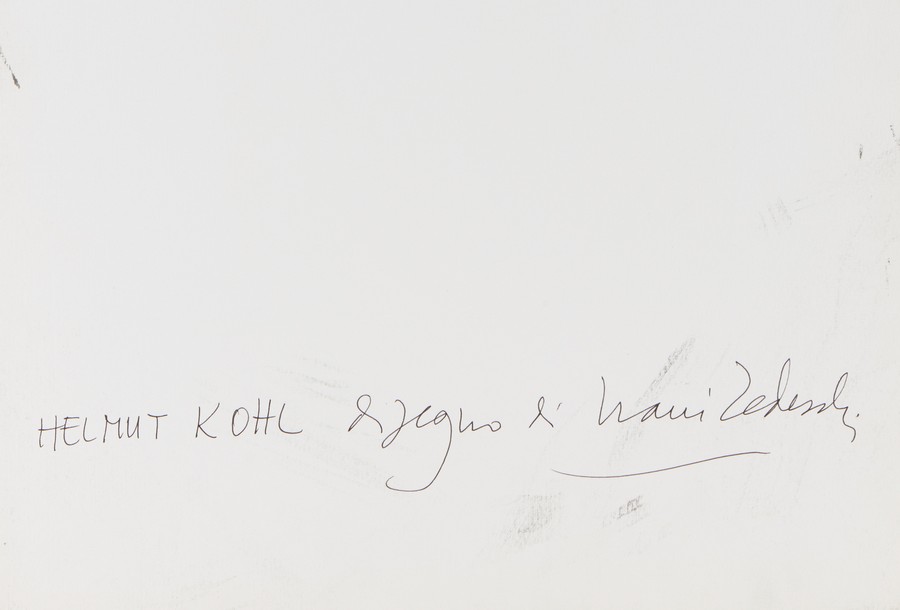 HELMUT KOHL disegno di Nani Tedeschi